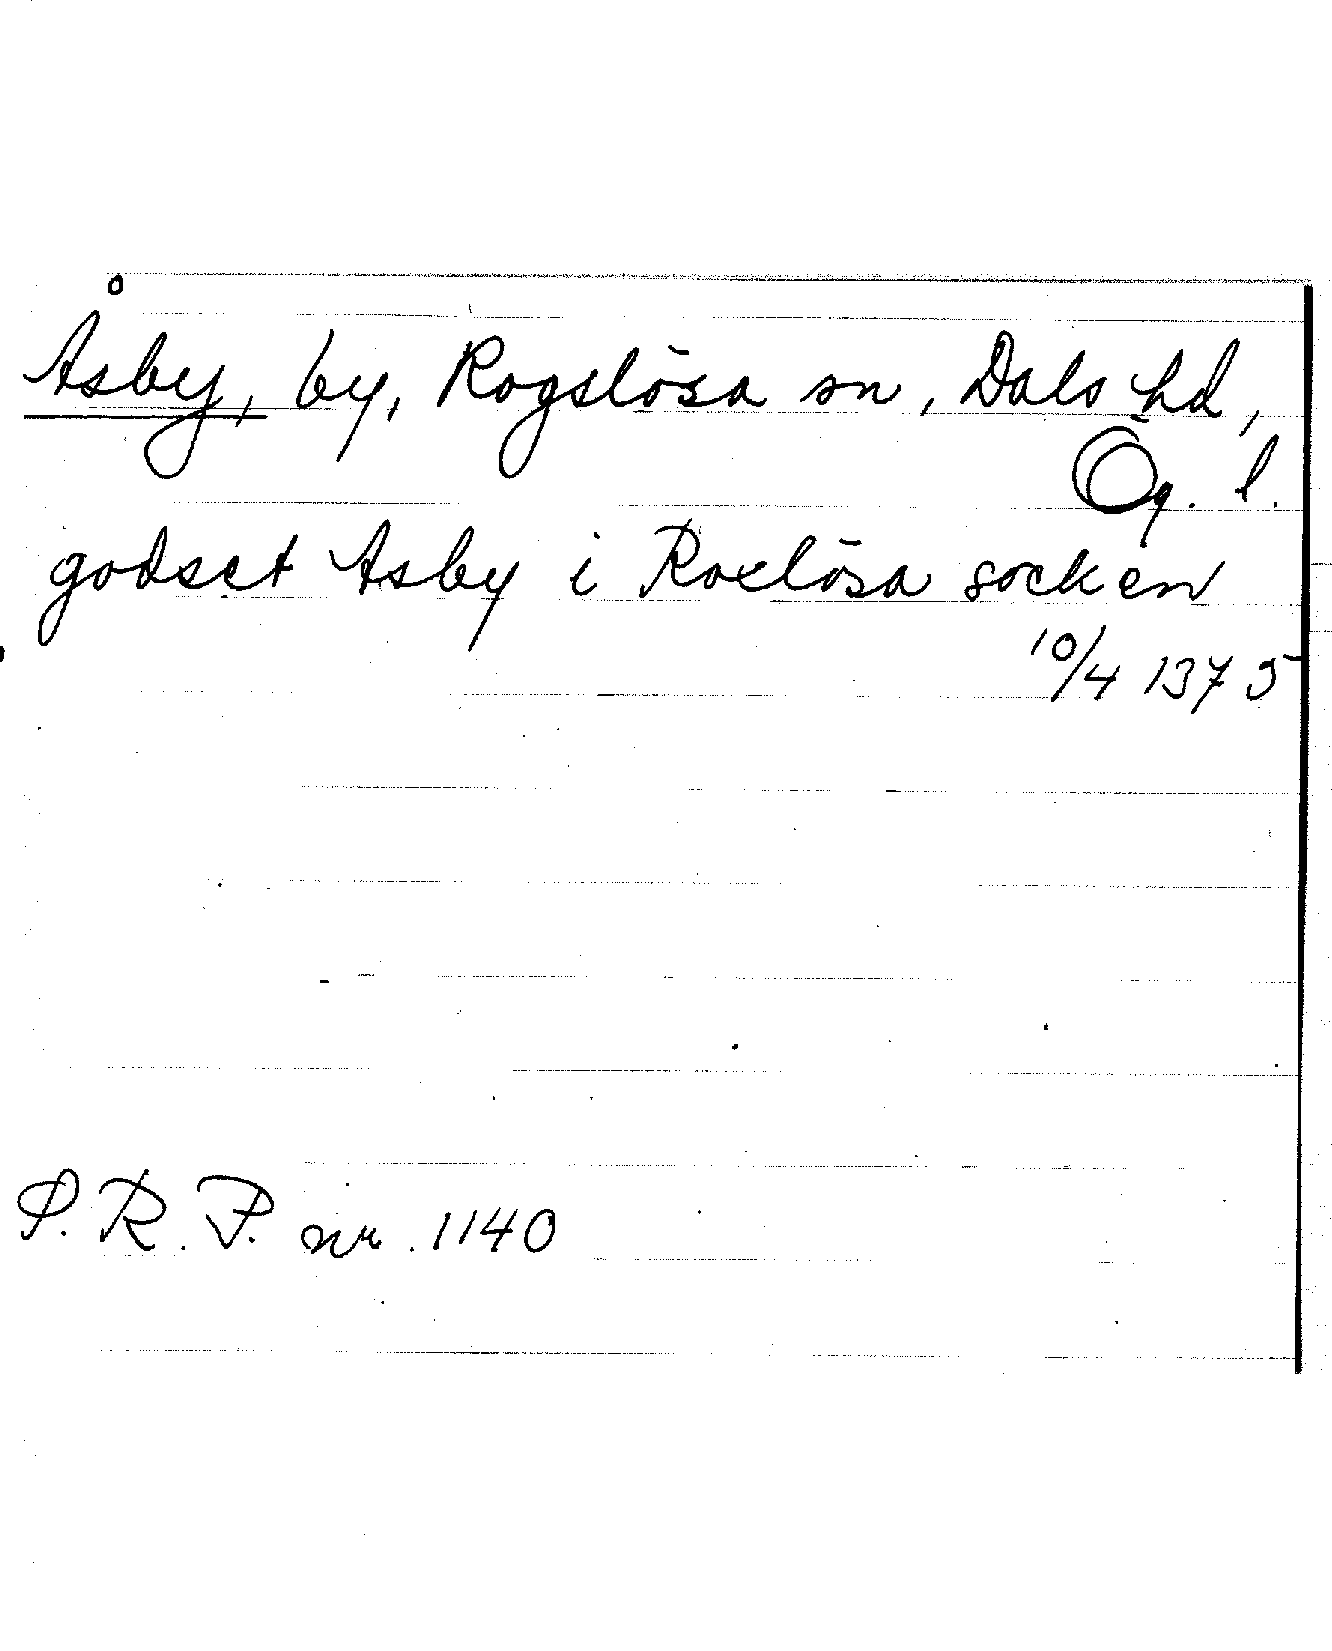 Åsby, by, Rogslösa sn, Dals hd,
Ög. l.
godset Asby i Roxlösa socken
10/4 1375
S. R. P. nr. 1140